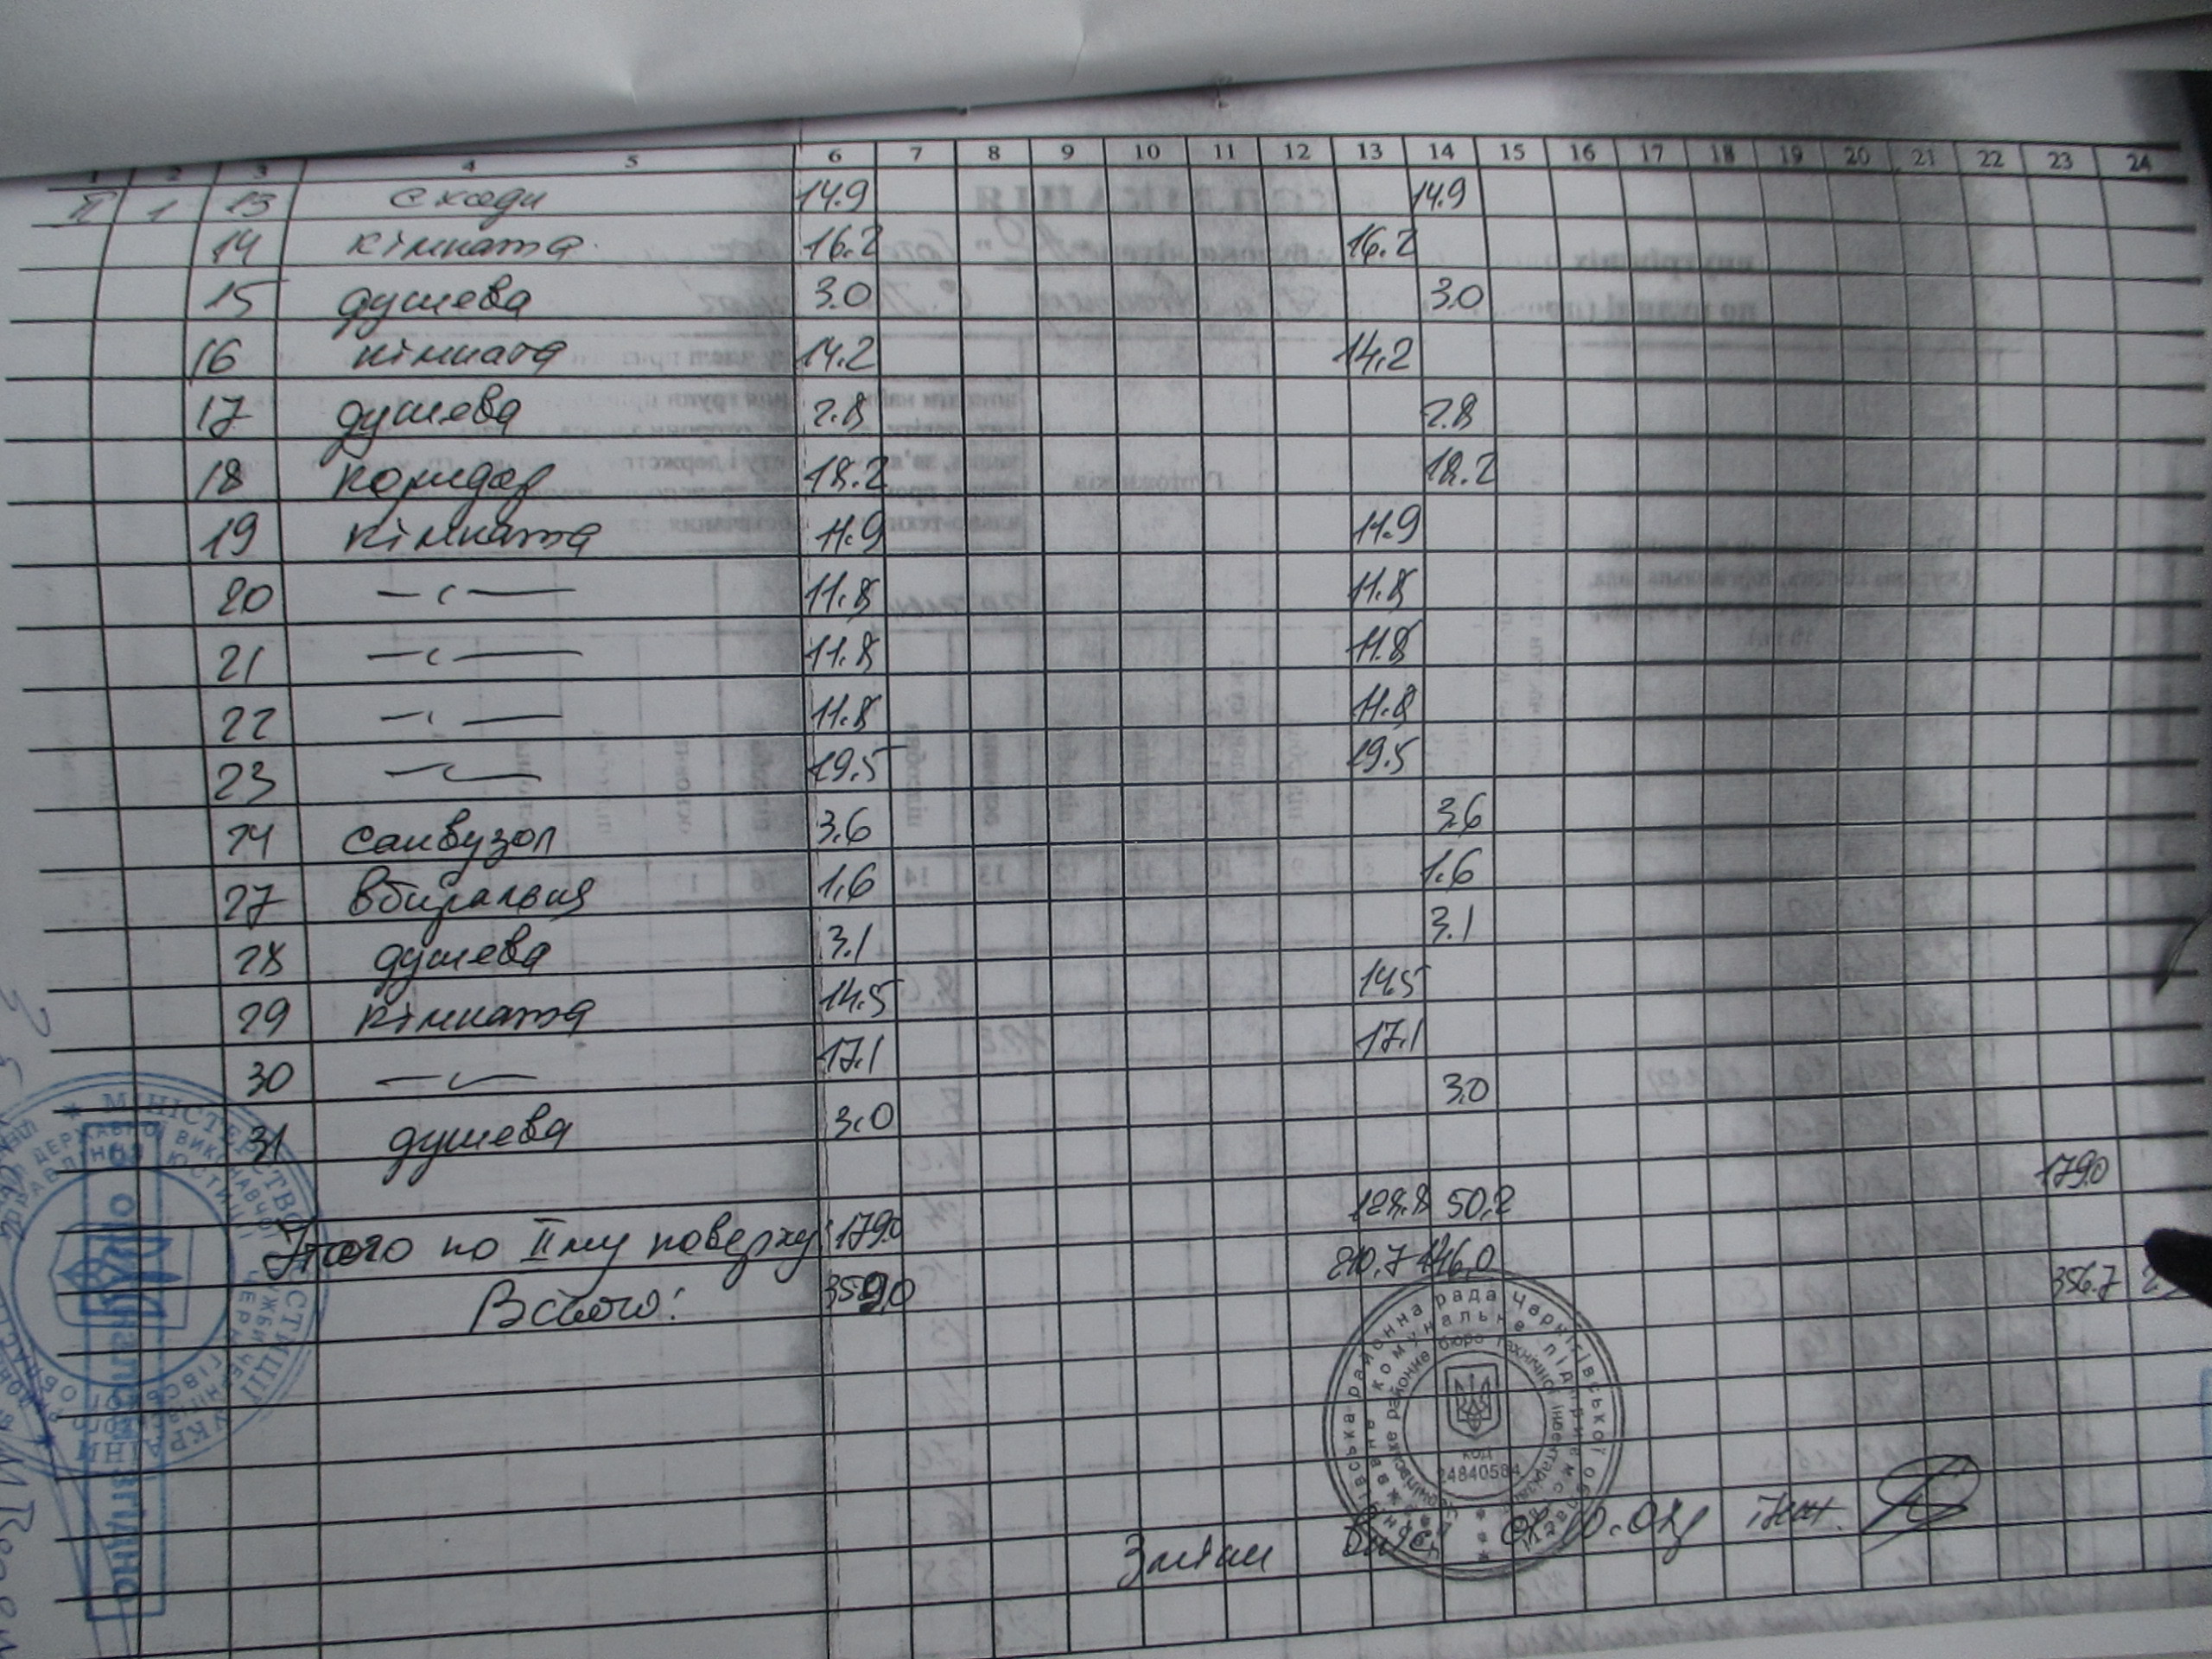 1 2 3 4 5 6 7 8 9 10 11 12 13 14 15 16 17 18 19 20 21 22 23 24
II 1 13 сходи 14.9 14.9
14 кімната 16.2 16.2
15 душева 3.0 3.0
16 кімната 14.2 14.2
17 душева 2.8 2.8
18 коридор 18.2 18.2
19 кімната 11.9 11.9
20 —〃— 11.8 11.8
21 —〃— 11.8 11.8
22 —〃— 11.8 11.8
23 —〃— 19.5 19.5
24 санвузол 3.6 3.6
27 вбиральня 1.6 1.6
28 душева 3.1 3.1
29 кімната 14.5 14.5
30 —〃— 17.1 17.1
31 душева 3.0 3.0
Этого по II му поверху: 179.0 128.8 50.2 179.0
Всього: 210.7 146.0 356.7
районна рада Чернігівської області
комунальне підприємство
районне бюро технічної інвентаризації
код
24840584
інж.
МІНІСТЕРСТВО ЮСТИЦІЇ УКРАЇНИ
З оригіналом згідно